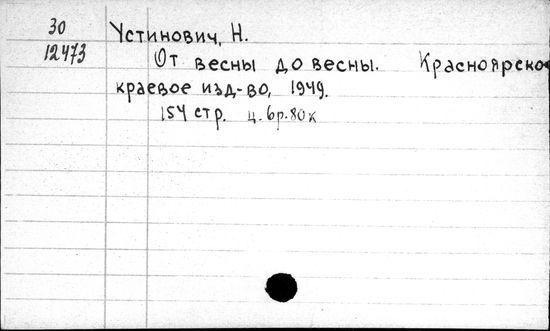 30
12473
Устинович, Н.
От весны до весны. Красноярско
краевое изд-во, 1949.
154 стр. ц. 6р. 80к